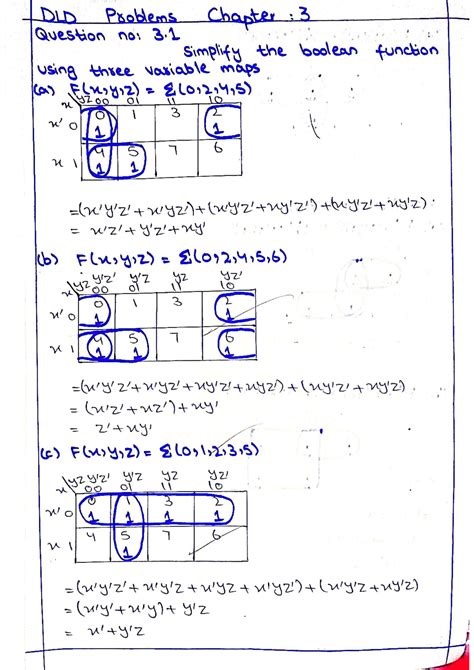 DLD Problems Chapter : 3
Question no: 3.1
Simplify the boolean function
using three variable maps
(a) F(x,y,z) = Σ(0,2,4,5)
x yz 00 01 11 10
x' 0 0 1 3 2
1 1
x 1 4 5 7 6
1 1
=(x'y'z'+x'yz')+(x'y'z'+xy'z')+(xy'z'+xy'z)
= x'z'+y'z'+xy'
(b) F(x,y,z) = Σ(0,2,4,5,6)
yz y'z' y'z yz yz'
x 00 01 11 10
x' 0 0 1 3 2
1 1
x 1 4 5 7 6
1 1 1
=(x'y'z'+x'yz'+xy'z'+xyz')+(xy'z'+xy'z)
= (x'z'+xz')+xy'
= z'+xy'
(c) F(x,y,z) = Σ(0,1,2,3,5)
yz y'z' y'z yz yz'
x 00 01 11 10
x' 0 0 1 3 2
1 1 1 1
x 1 4 5 7 6
1
=(x'y'z'+x'y'z+x'yz+x'yz')+(x'y'z+xy'z)
= (x'y'+x'y)+y'z
= x'+y'z